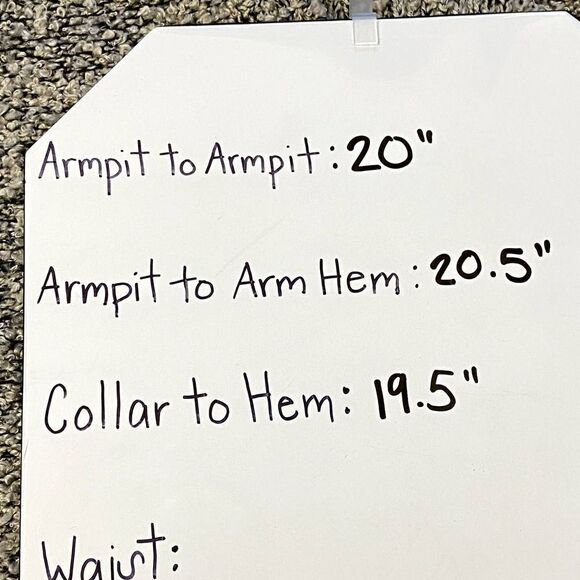 Armpit to Armpit: 20"
Armpit to Arm Hem: 20.5"
Collar to Hem: 19.5"
Waist: